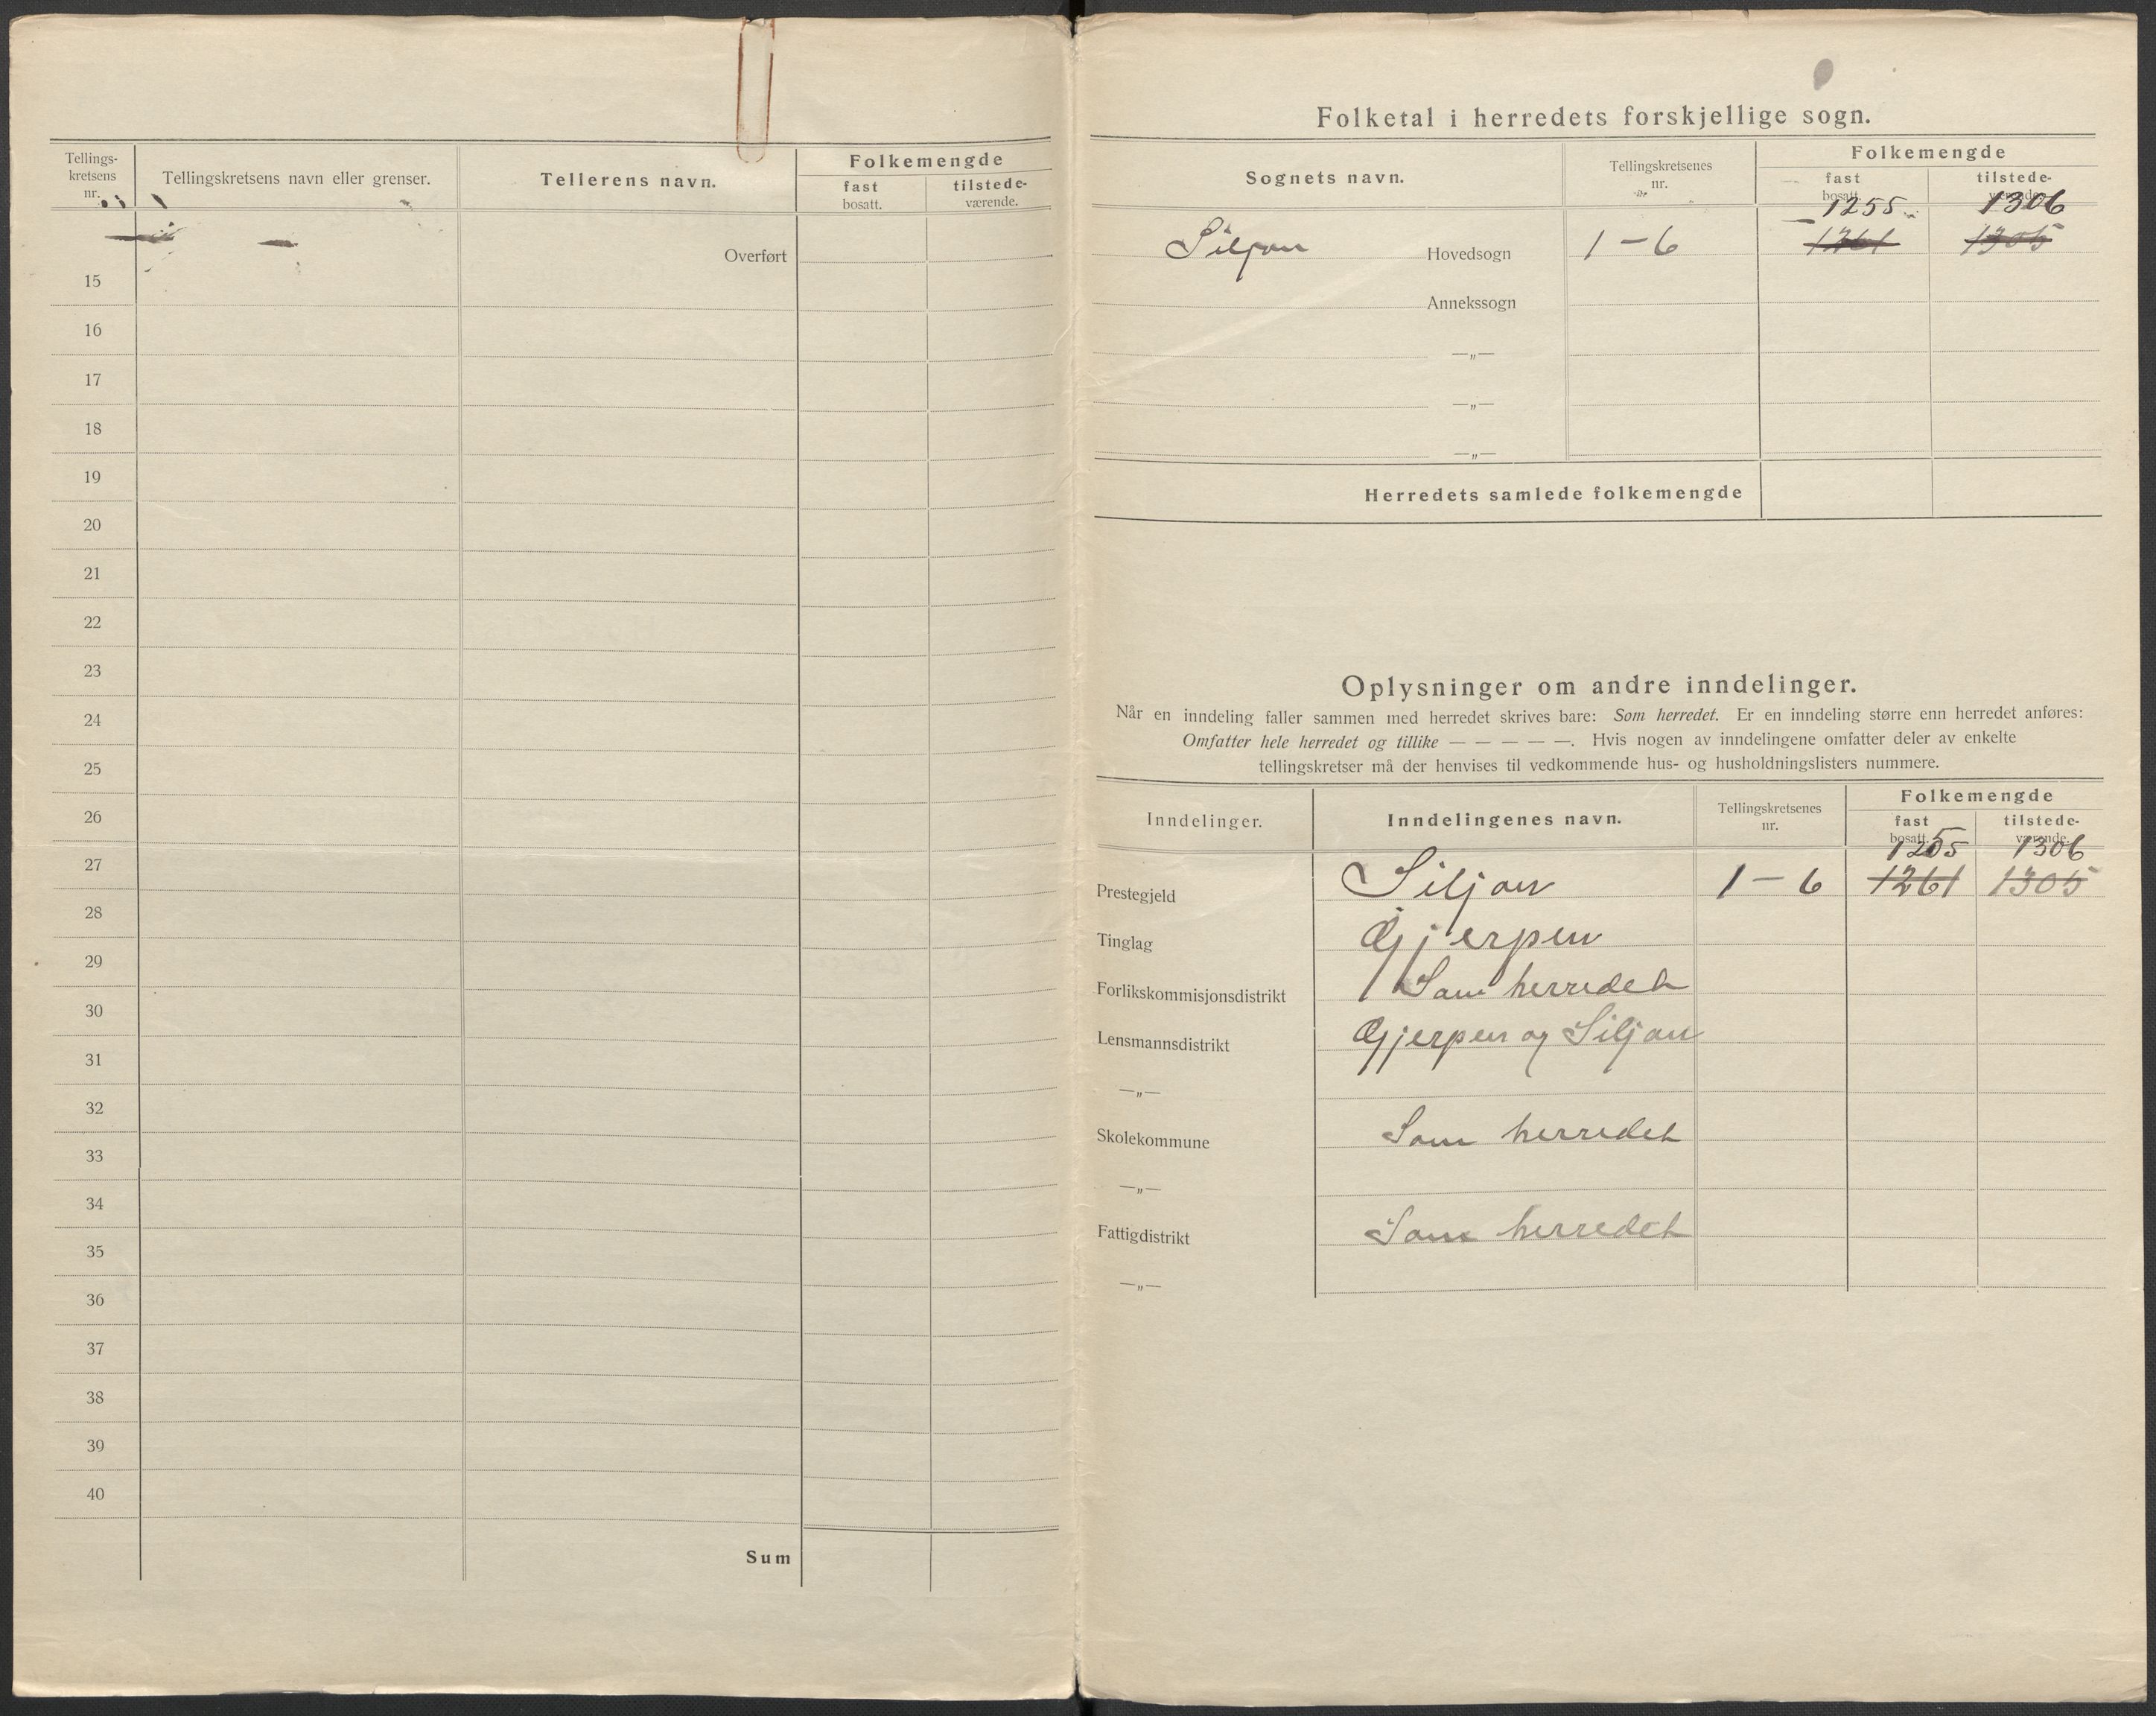 Tellings-
kretsens
nr.
Tellingskretsens navn eller grenser.
Tellerens navn.
Folkemengde
fast
bosatt.
tilstede-
værende.
Overført
15
16
17
18
19
20
21
22
23
24
25
26
27
28
29
30
31
32
33
34
35
36
37
38
39
40
Sum
Folketal i herredets forskjellige sogn.
Sognets navn.
Tellingskretsenes
nr.
Folkemengde
fast
bosatt.
tilstede-
værende.
1255 1306
Siljan Hovedsogn 1-6 1261 1305
Annekssogn
—„—
—„—
—„—
Herredets samlede folkemengde
Oplysninger om andre inndelinger.
Når en inndeling faller sammen med herredet skrives bare: Som herredet. Er en inndeling større enn herredet anføres:
Omfatter hele herredet og tillike — — — — —. Hvis nogen av inndelingene omfatter deler av enkelte
tellingskretser må der henvises til vedkommende hus- og husholdningslisters nummere.
Inndelinger.
Inndelingenes navn.
Tellingskretsenes
nr.
Folkemengde
fast
bosatt.
tilstede-
værende.
1255 1306
Prestegjeld Siljan 1-6 1261 1305
Tinglag Gjerpen
Forlikskommisjonsdistrikt Som herredet
Lensmannsdistrikt Gjerpen og Siljan
—„—
Skolekommune Som herredet
—„—
Fattigdistrikt Som herredet
—„—